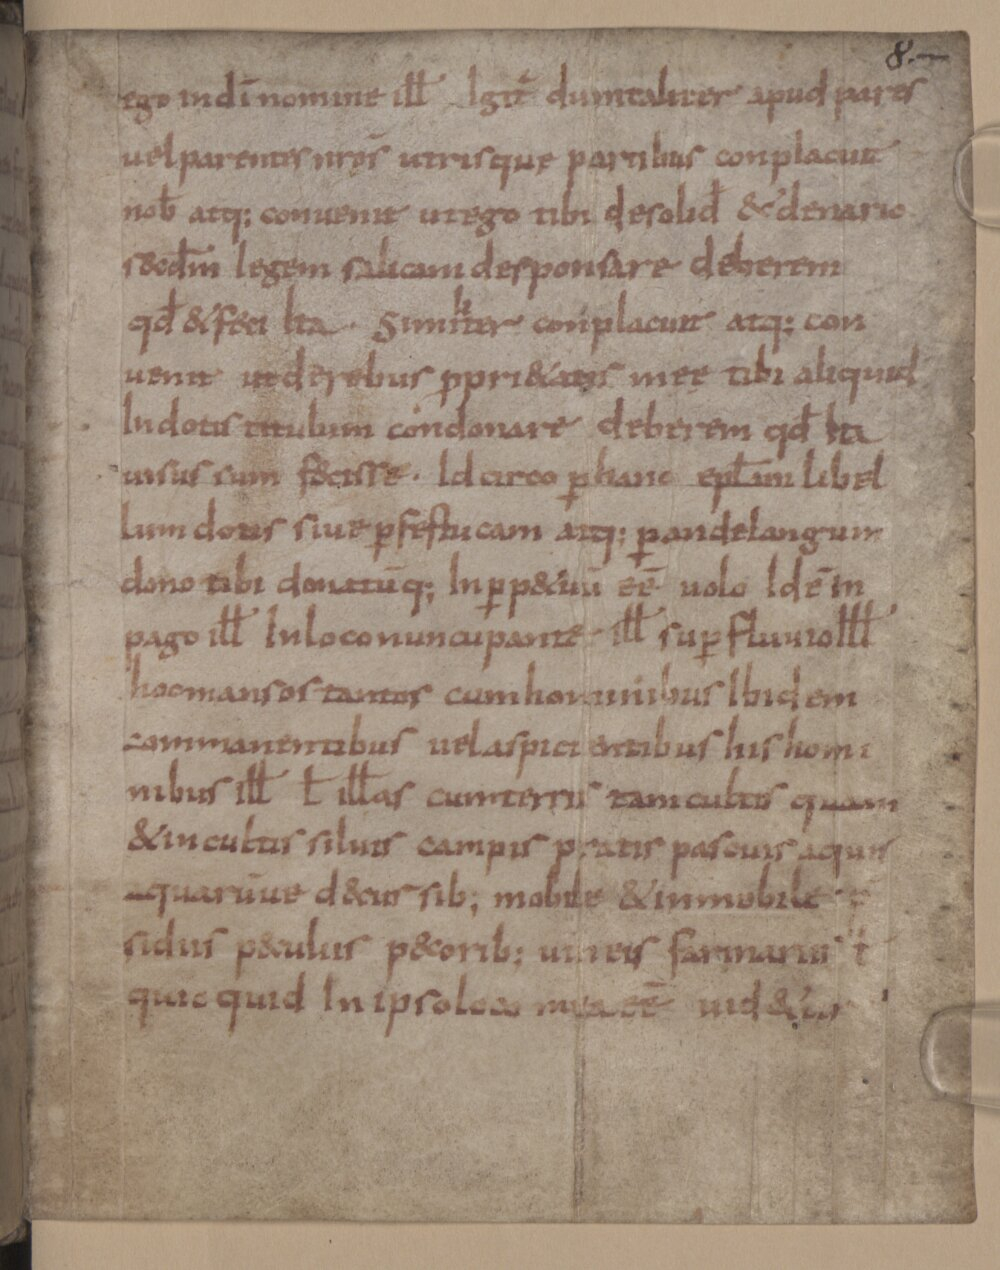 8.–
ego in dī nomine ill̄l Igit̄ dum taliter apud pares
vel parentes nr̄os utrisque partibus conplacuit
nob̄ atq; convenit ut ego tibi de solid̄ & denario
s&cdm̄ legem salicam desponsare deberem
qd̄ & feci Ita. Simiter conplacuit atq; con
venit ut de rebus ꝓpri&atis mee tibi aliquid
In dotis titulum condonare deberem qd̄ Ita
visus sum fecisse. Id circo ꝑ hanc epl̄am libel
lum dotis sive ꝑ festucam atq; ꝑ andelangum
dono tibi donatūq; In ꝑp&uū eē volo Id ē in
pago ill̄l In loco nuncupante ill̄l suꝑ fluvio ill̄l
hoc mansos tantos cum hominibus Ibidem
commanentibus vel aspicientibus his homi
nibus ill̄l l̄ ill̄as cum terris tam cultis quam
& incultis silvis campis pratis pascuis aquis
aquarūve d&cursib; mobile & inmobile
sidiis p&culiis p&corib; vineis farinariis l̄
quic quid In ipso loco mea eē vid&ur